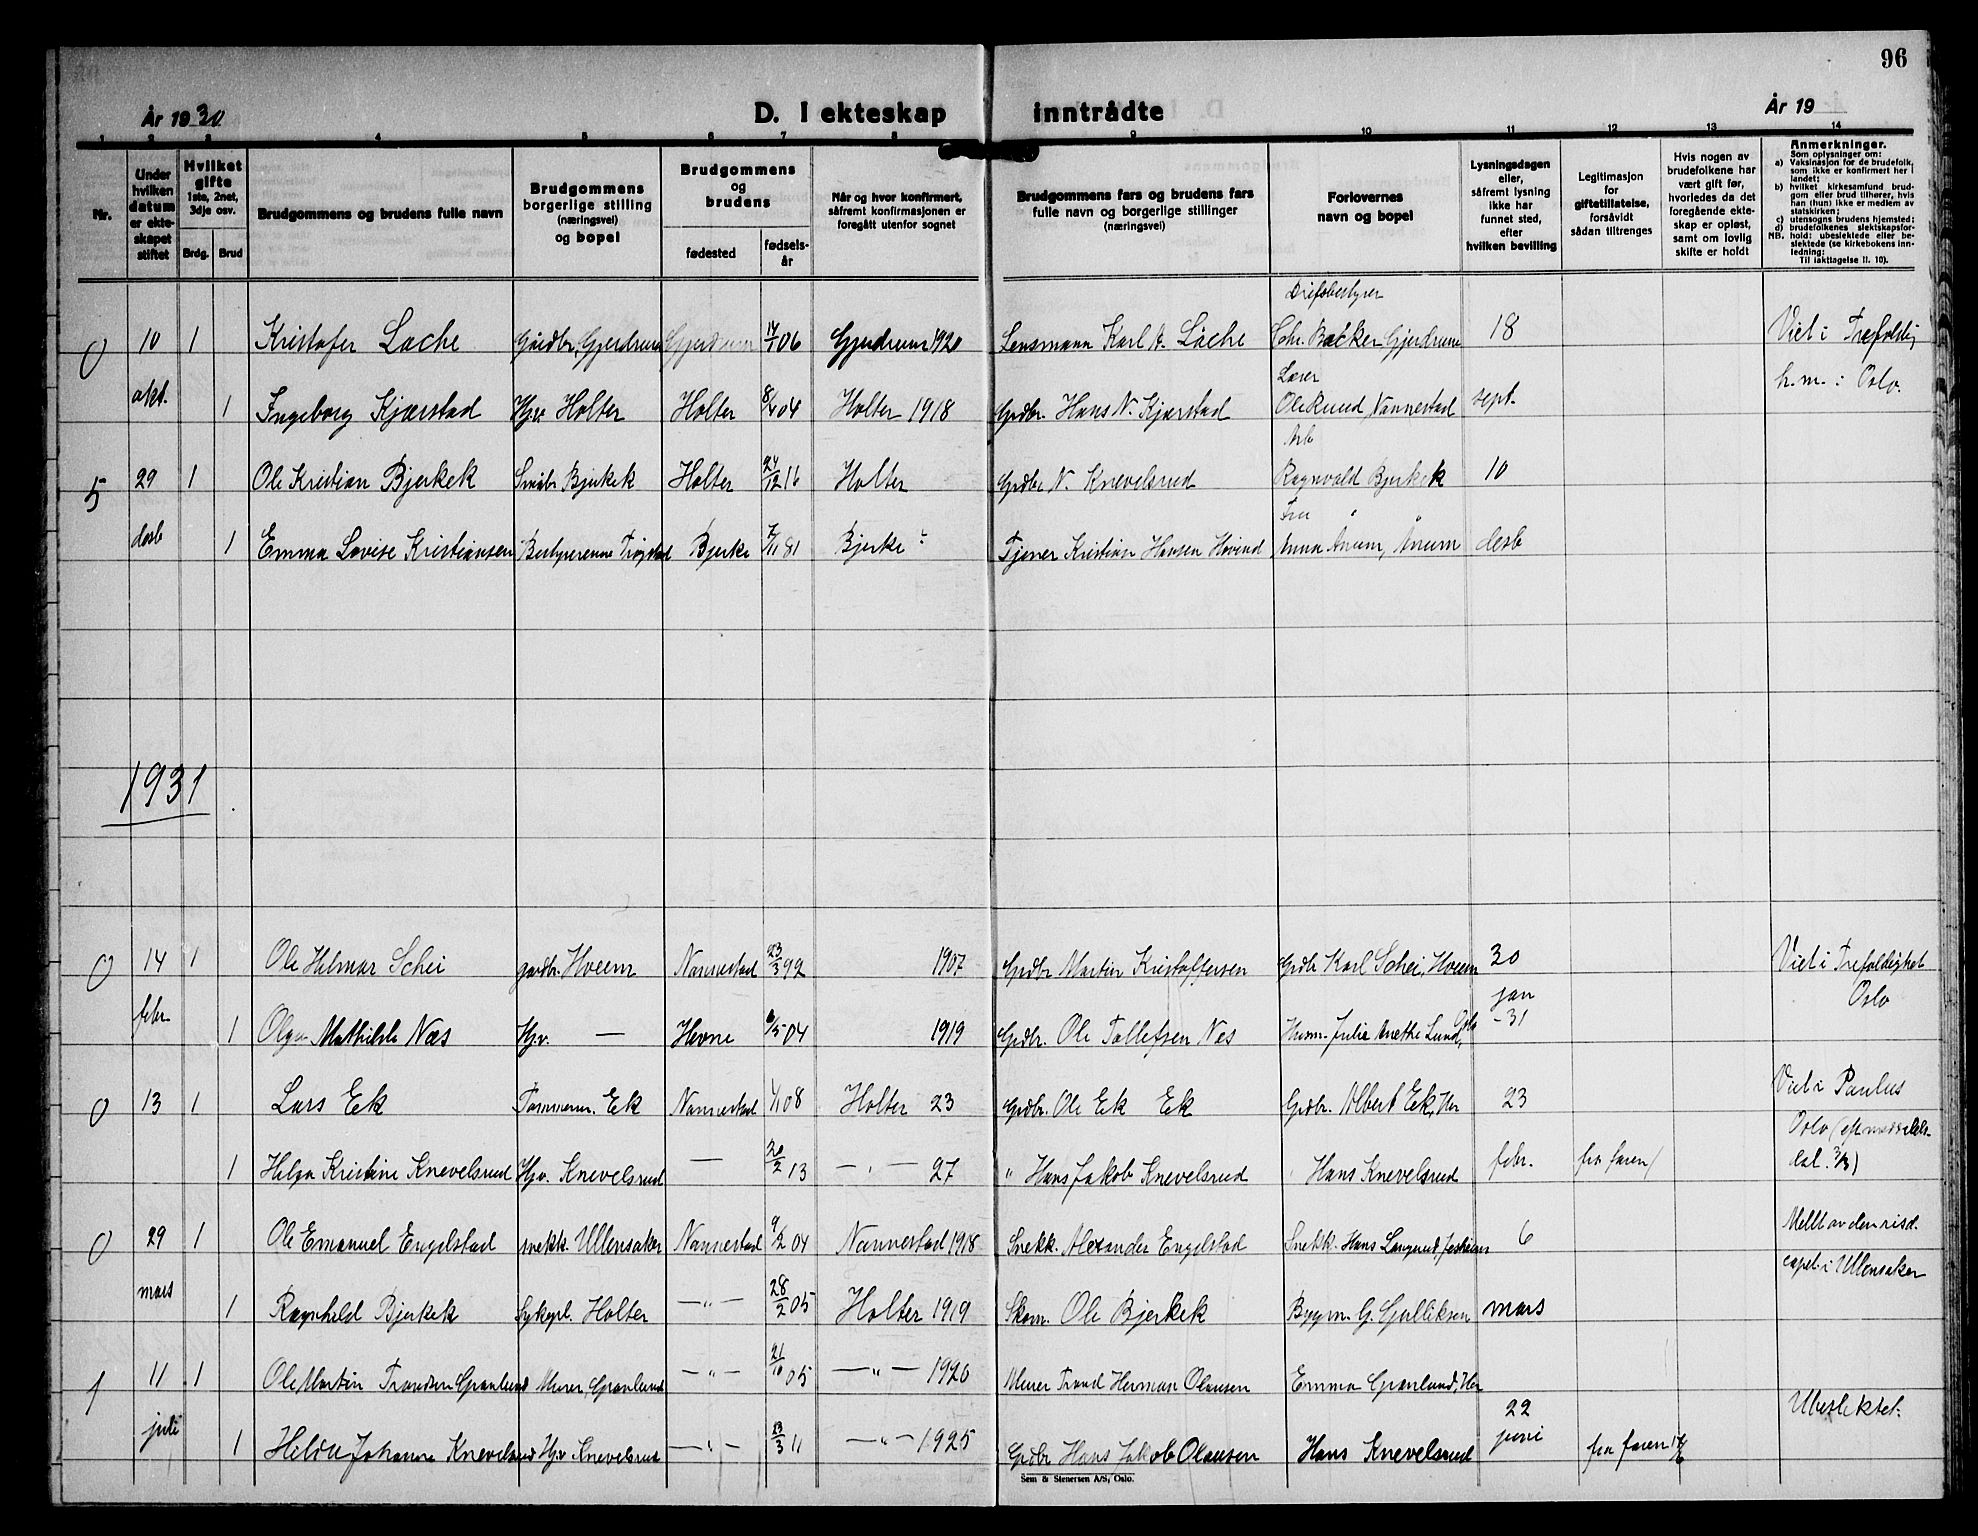 96
År 1930
D. I ekteskap inntrådte
År 19
1 2 3 4 5 6 7 8 9 10 11 12 13 14
Nr.
Under hvilken datum er ekteskapet stiftet
Hvilket gifte 1ste, 2net, 3dje osv.
Brdg. Brud
Brudgommens og brudens fulle navn
Brudgommens borgerlige stilling (næringsvei) og bopel
Brudgommens og brudens
fødested
fødselsår
Når og hvor konfirmert, såfremt konfirmasjonen er foregått utenfor sognet
Brudgommens fars og brudens fars fulle navn og borgerlige stillinger (næringsvei)
Forlovernes navn og bopel
Lysningsdagen eller, såfremt lysning ikke har funnet sted, efter hvilken bevilling
Legitimasjon for giftetillatelse, forsåvidt sådan tiltrenges
Hvis nogen av brudefolkene har vært gift før, hvorledes da det foregående ekteskap er opløst, samt om lovlig skifte er holdt
Anmerkninger.
Som oplysninger om:
a) Vaksinasjon for de brudefolk, som ikke er konfirmert her i landet;
b) hvilket kirkesamfund brudgom eller brud tilhører, hvis han (hun) ikke er medlem av statskirken;
c) utensogns brudens hjemsted;
d) brudefolkenes slektskapsforhold: ubeslektede eller beslektede (se kirkebokens innledning:
NB. Til iakttagelse II. 10).
Drifsbestyrer
0 10 1 Kristofer Lache Gårdbr. Gjerdrum Gjerdrum 14/1 06 Gjerdrum 1920 Lensmann Karl A. Låche Chr. Backer Gjerdrum 18 Viet i Trefoldig
Lærer
okt. 1 Ingeborg Kjærstad Hjv. Holter Holter 8/4 04 Holter 1918 Grdbr. Hans N. Kjærstad Ole Ruud, Nannestad sept. h.m. i Oslo.
Arb
5 29 1 Ole Kristian Bjerkek Småbr Bjerkek Holter 24/12 16 Holter Grdbr N. Knevelsrud Ragnvald Bjerkek 10
Fru
desb 1 Emma Lovise Kristiansen Bestyrerenne Trøgstad Bjerke 7/11 81 Bjerke ? Tjener Kristian Hansen Hovind Anna Ånum, Ånum desb
1931
0 14 1 Ole Hilmar Schei gårdbr. Hveem Nannestad 23/3 92 1907 Grdbr Martin Kristoffersen Grdbr Karl Schei, Hveem 30 Viet i Trefoldighet
febr. 1 Olga Mathilde Næs Hjv. — Hevne 6/5 04 1919 Grdbr. Ole Tollefsen Næs Husm. Julie Anethe Lund, Oslo jan -31 Oslo
0 13 1 Lars Ek Tømmerm. Ek Nannestad 4/1 08 Holter 23 Grdbr. Ole Ek Ek Grdbr. Albert Ek, Her 23 Viet i Paulus
1 Helga Kristine Knevelsrud Hjv. Knevelsrud — 20/2 13 — " — 27 " Hans Jakob Knevelsrud " Hans Knevelsrud febr. fra faren Oslo (eft meddelels dat. 3/3)
0 29 1 Ole Emanuel Engelstad snekk. Ullensaker Nannestad 9/2 04 Nannestad 1918 Snekk. Alexander Engelstad Snekk. Hans Langerud, Jessheim 6 Meldt av den resid.
mars 1 Ragnhild Bjerkek Sykepl. Holter — " — 28/2 05 Holter 1919 Skom. Ole Bjerkek Byggm. G. Gulliksen mars capel. i Ullensaker
1 11 1 Ole Martin Trondsen Grønlund Murer, Grønlund — " — 21/10 05 — " — 1920 Murer Trond Herman Olausen Emma Grønlund, Her 22 Ubeslektet.
juli 1 Hilda Johanne Knevelsrud Hjv Knevelsrud — " — 23/3 11 — " — 1925 Grdbr Hans Jakob Olausen Hans Knevelsrud juni fra faren
Sem & Stenersen A/S, Oslo.